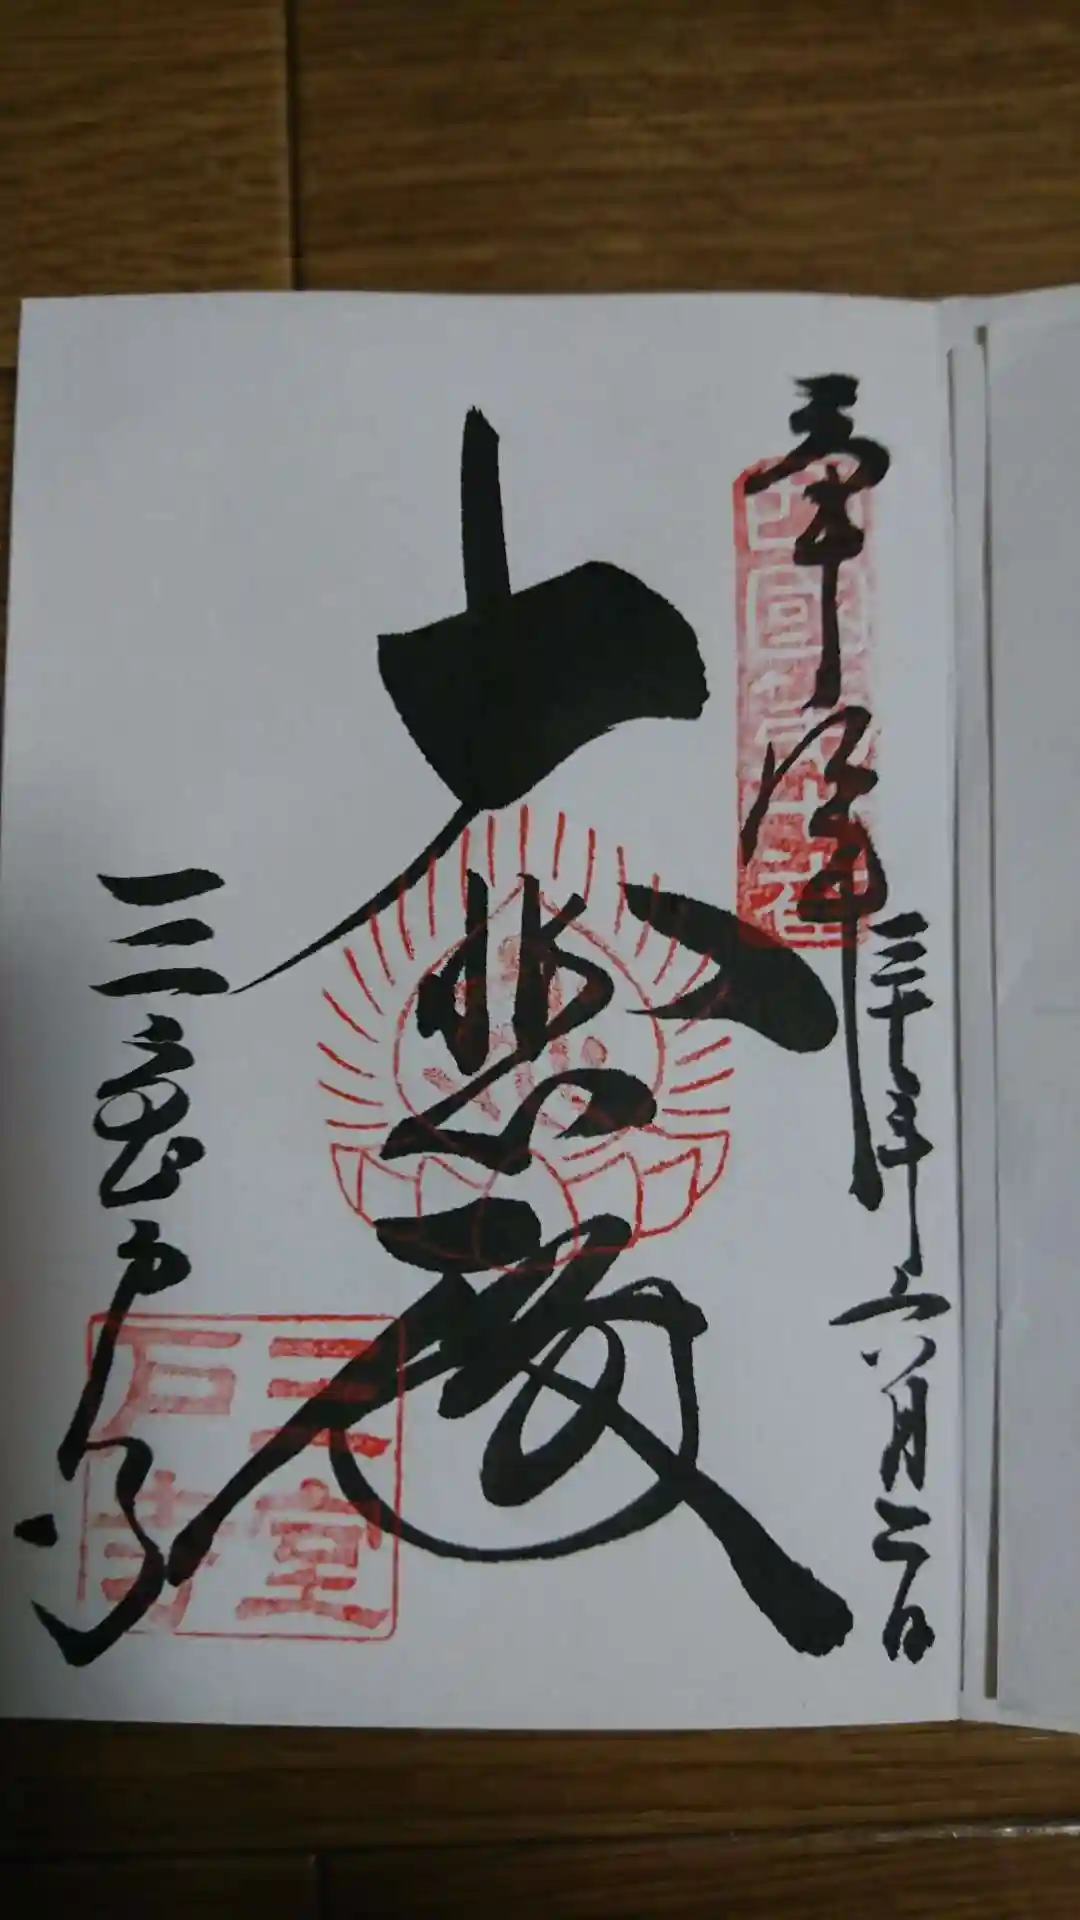 奉拝
三十年六月二日
西国第十番
大悲殿
三室戸寺
三室
戸寺